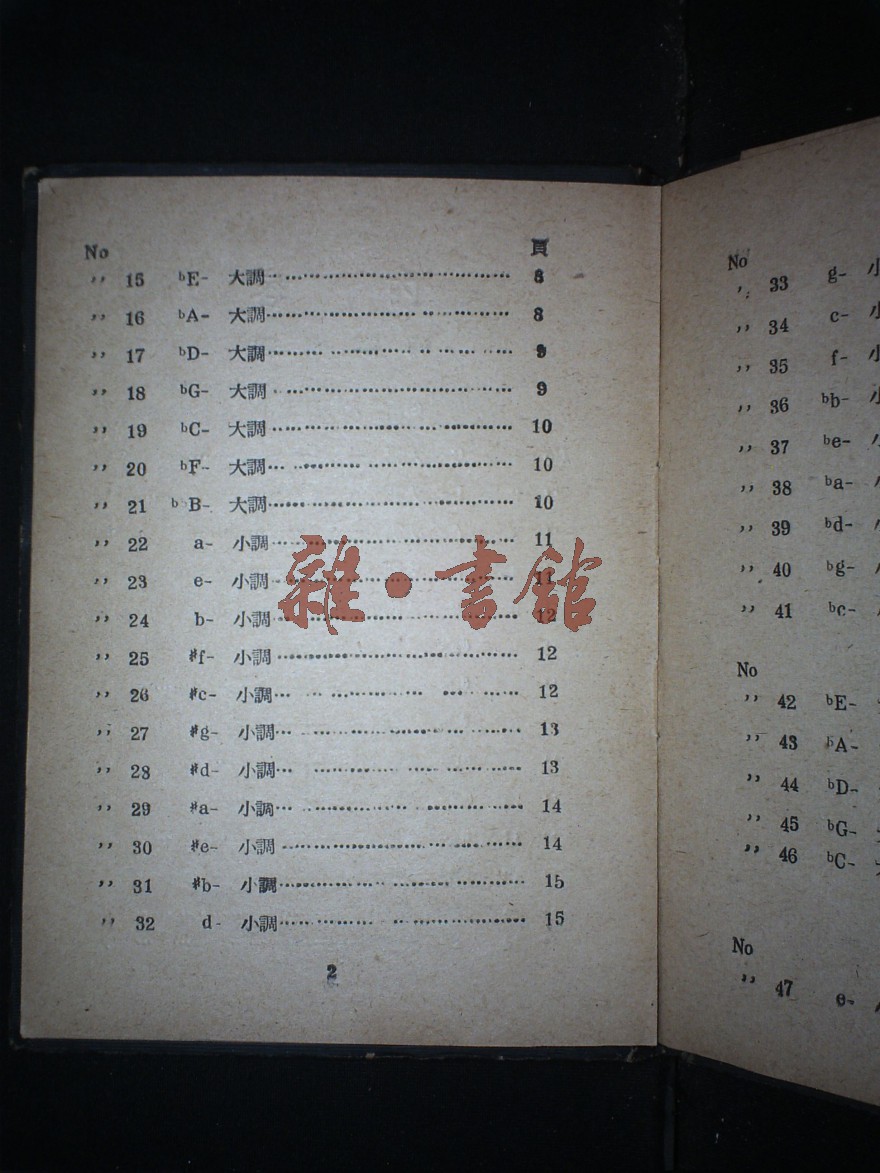 No 頁
,, 15 ᵇE- 大調 8
,, 16 ᵇA- 大調 8
,, 17 ᵇD- 大調 9
,, 18 ᵇG- 大調 9
,, 19 ᵇC- 大調 10
,, 20 ᵇF- 大調 10
,, 21 ᵇᵇB- 大調 10
,, 22 a- 小調 11
,, 23 e- 小調 11
,, 24 b- 小調 12
,, 25 #f- 小調 12
,, 26 #c- 小調 12
,, 27 #g- 小調 13
,, 28 #d- 小調 13
,, 29 #a- 小調 14
,, 30 #e- 小調 14
,, 31 #b- 小調 15
,, 32 d- 小調 15
2
雜·書館
No
,, 33 g- 小
,, 34 c- 小
,, 35 f- 小
,, 36 ᵇb- 小
,, 37 ᵇe-
,, 38 ᵇa-
,, 39 ᵇd-
,, 40 ᵇg-
,, 41 ᵇc-
No
,, 42 ᵇE-
,, 43 ᵇA-
,, 44 ᵇD-
,, 45 ᵇG-
,, 46 ᵇC-
No
,, 47 e-